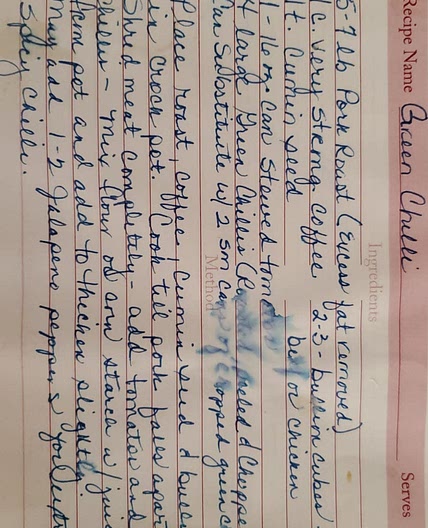 Recipe Name Green Chilli Serves
Ingredients
5-7 lb Pork Roast (Excess fat removed)
C. Very Strong coffee 2-3 - bullion cubes
t. Cumin seed beef or chicken
1 - 16 oz. can stewed
4 large Green Chilis ( peeled & Choppe
Can substitute w/ 2 sm cans of chopped green c
Method
Place roast, coffee, cumin seed & bullio
in crock pot. Cook till pork falls apar
Shred meat completely - add tomatoes and
chilies - Mix flour or corn starch w/ jui
from pot and add to thicken slightly.
May add 1-2 Jalapeno peppers
spicy chilli.